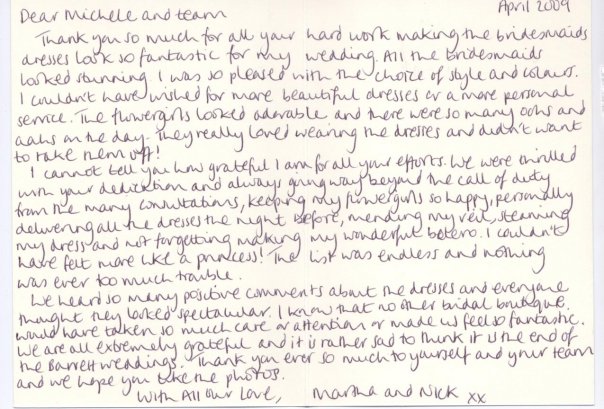 Dear Michele and team
April 2009
Thank you so much for all your hard work making the bridesmaids
dresses look so fantastic for my wedding. All the bridesmaids
looked stunning, I was so pleased with the choice of style and colours.
I couldn't have wished for more beautiful dresses or a more personal
service. The flowergirls looked adorable and there were so many oohs and
aahs on the day. They really loved wearing the dresses and didn't want
to take them off!
I cannot tell you how grateful I am for all your efforts. We were thrilled
with your dedication and always going way beyond the call of duty
from the many consultations, keeping my flowergirls so happy, personally
delivering all the dresses the night before, mending my veil, steaming
my dress and not forgetting making my wonderful bolero. I couldn't
have felt more like a princess! The list was endless and nothing
was ever too much trouble.
We heard so many positive comments about the dresses and everyone
thought they looked spectacular. I know that no other bridal boutique
would have taken so much care or attention or made us feel so fantastic.
We are all extremely grateful and it is rather sad to think it is the end of
the Barrett weddings. Thank you ever so much to yourself and your team
and we hope you like the photos.
With All our Love, Martha and Nick xx